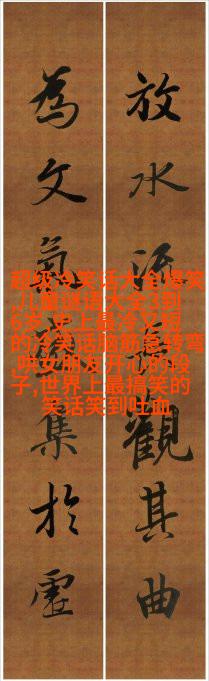 放水流觀其曲
為文氣集於虛
超级冷笑话大全爆笑
,儿童谜语大全3到
6岁,史上最冷又短
的冷笑话脑筋急转弯
,哄女朋友开心的段
子,世界上最搞笑的
笑话笑到吐血